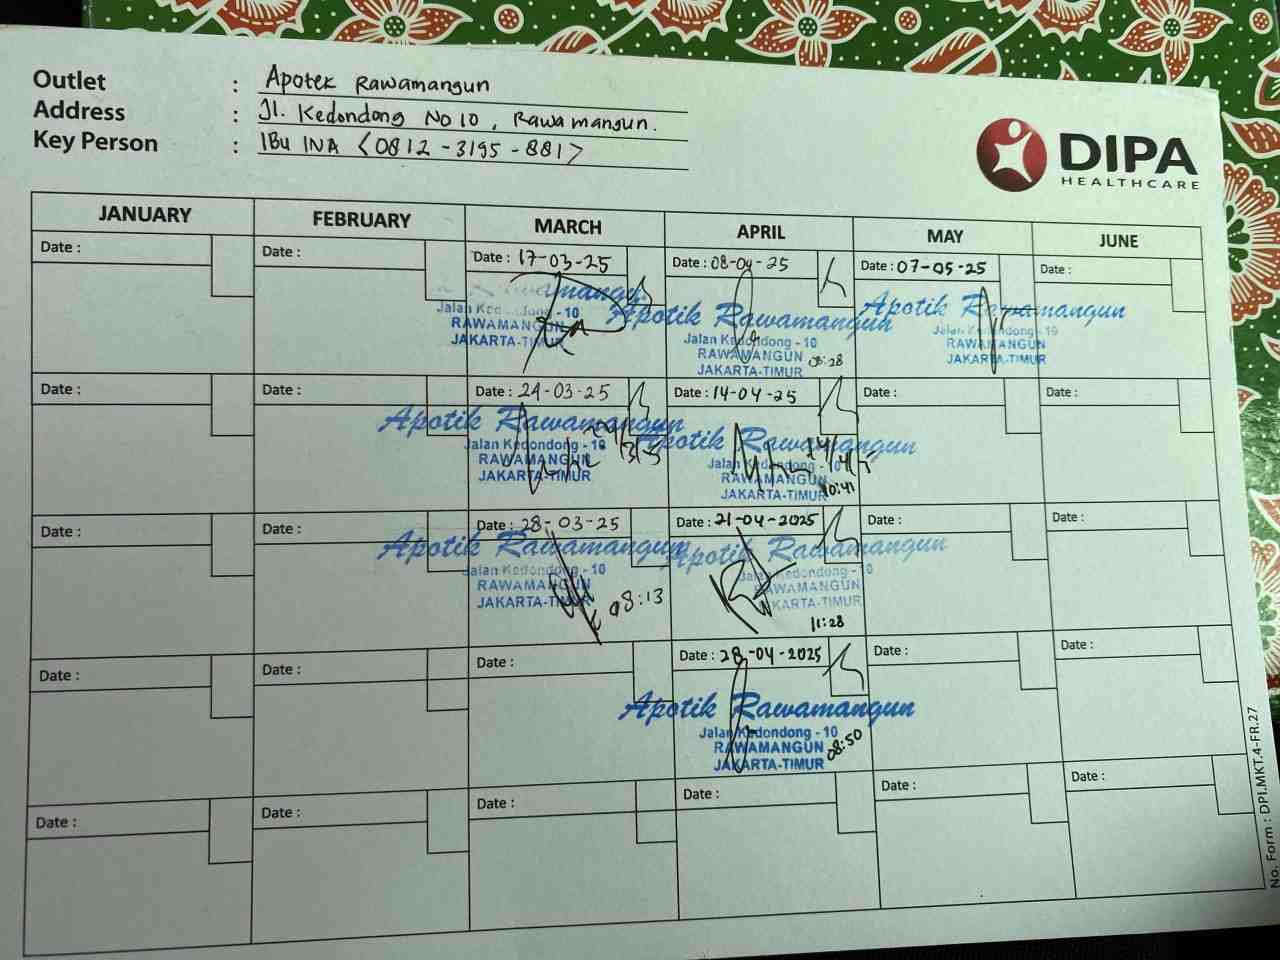 Outlet : Apotek Rawamangun
Address : Jl. Kedondong No 10, Rawamangun.
Key Person : IBU INA (0812-3195-881)
DIPA
HEALTHCARE
JANUARY FEBRUARY MARCH APRIL MAY JUNE
Date : Date : Date : 17-03-25 Date : 08-04-25 Date : 07-05-25 Date :
Apotik Rawamangun Apotik Rawamangun
Jalan Kedondong - 10 Jalan Kedondong - 10 Jalan Kedondong - 10
RAWAMANGUN RAWAMANGUN RAWAMANGUN
JAKARTA-TIMUR JAKARTA-TIMUR JAKARTA-TIMUR
08:28
Date : Date : Date : 24-03-25 Date : 14-04-25 Date : Date :
Apotik Rawamangun Apotik Rawamangun
Jalan Kedondong - 10 Jalan Kedondong - 10
RAWAMANGUN RAWAMANGUN
JAKARTA-TIMUR JAKARTA-TIMUR
10:41
Date : Date : Date : 28-03-25 Date : 21-04-2025 Date : Date :
Apotik Rawamangun Apotik Rawamangun
Jalan Kedondong - 10 Jalan Kedondong - 10
RAWAMANGUN RAWAMANGUN
JAKARTA-TIMUR JAKARTA-TIMUR
08:13 11:28
Date : Date : Date : Date : 28-04-2025 Date : Date :
Apotik Rawamangun
Jalan Kedondong - 10
RAWAMANGUN
JAKARTA-TIMUR
08:50
Date : Date : Date : Date : Date : Date :
No. Form : DPI.MKT.4-FR.27